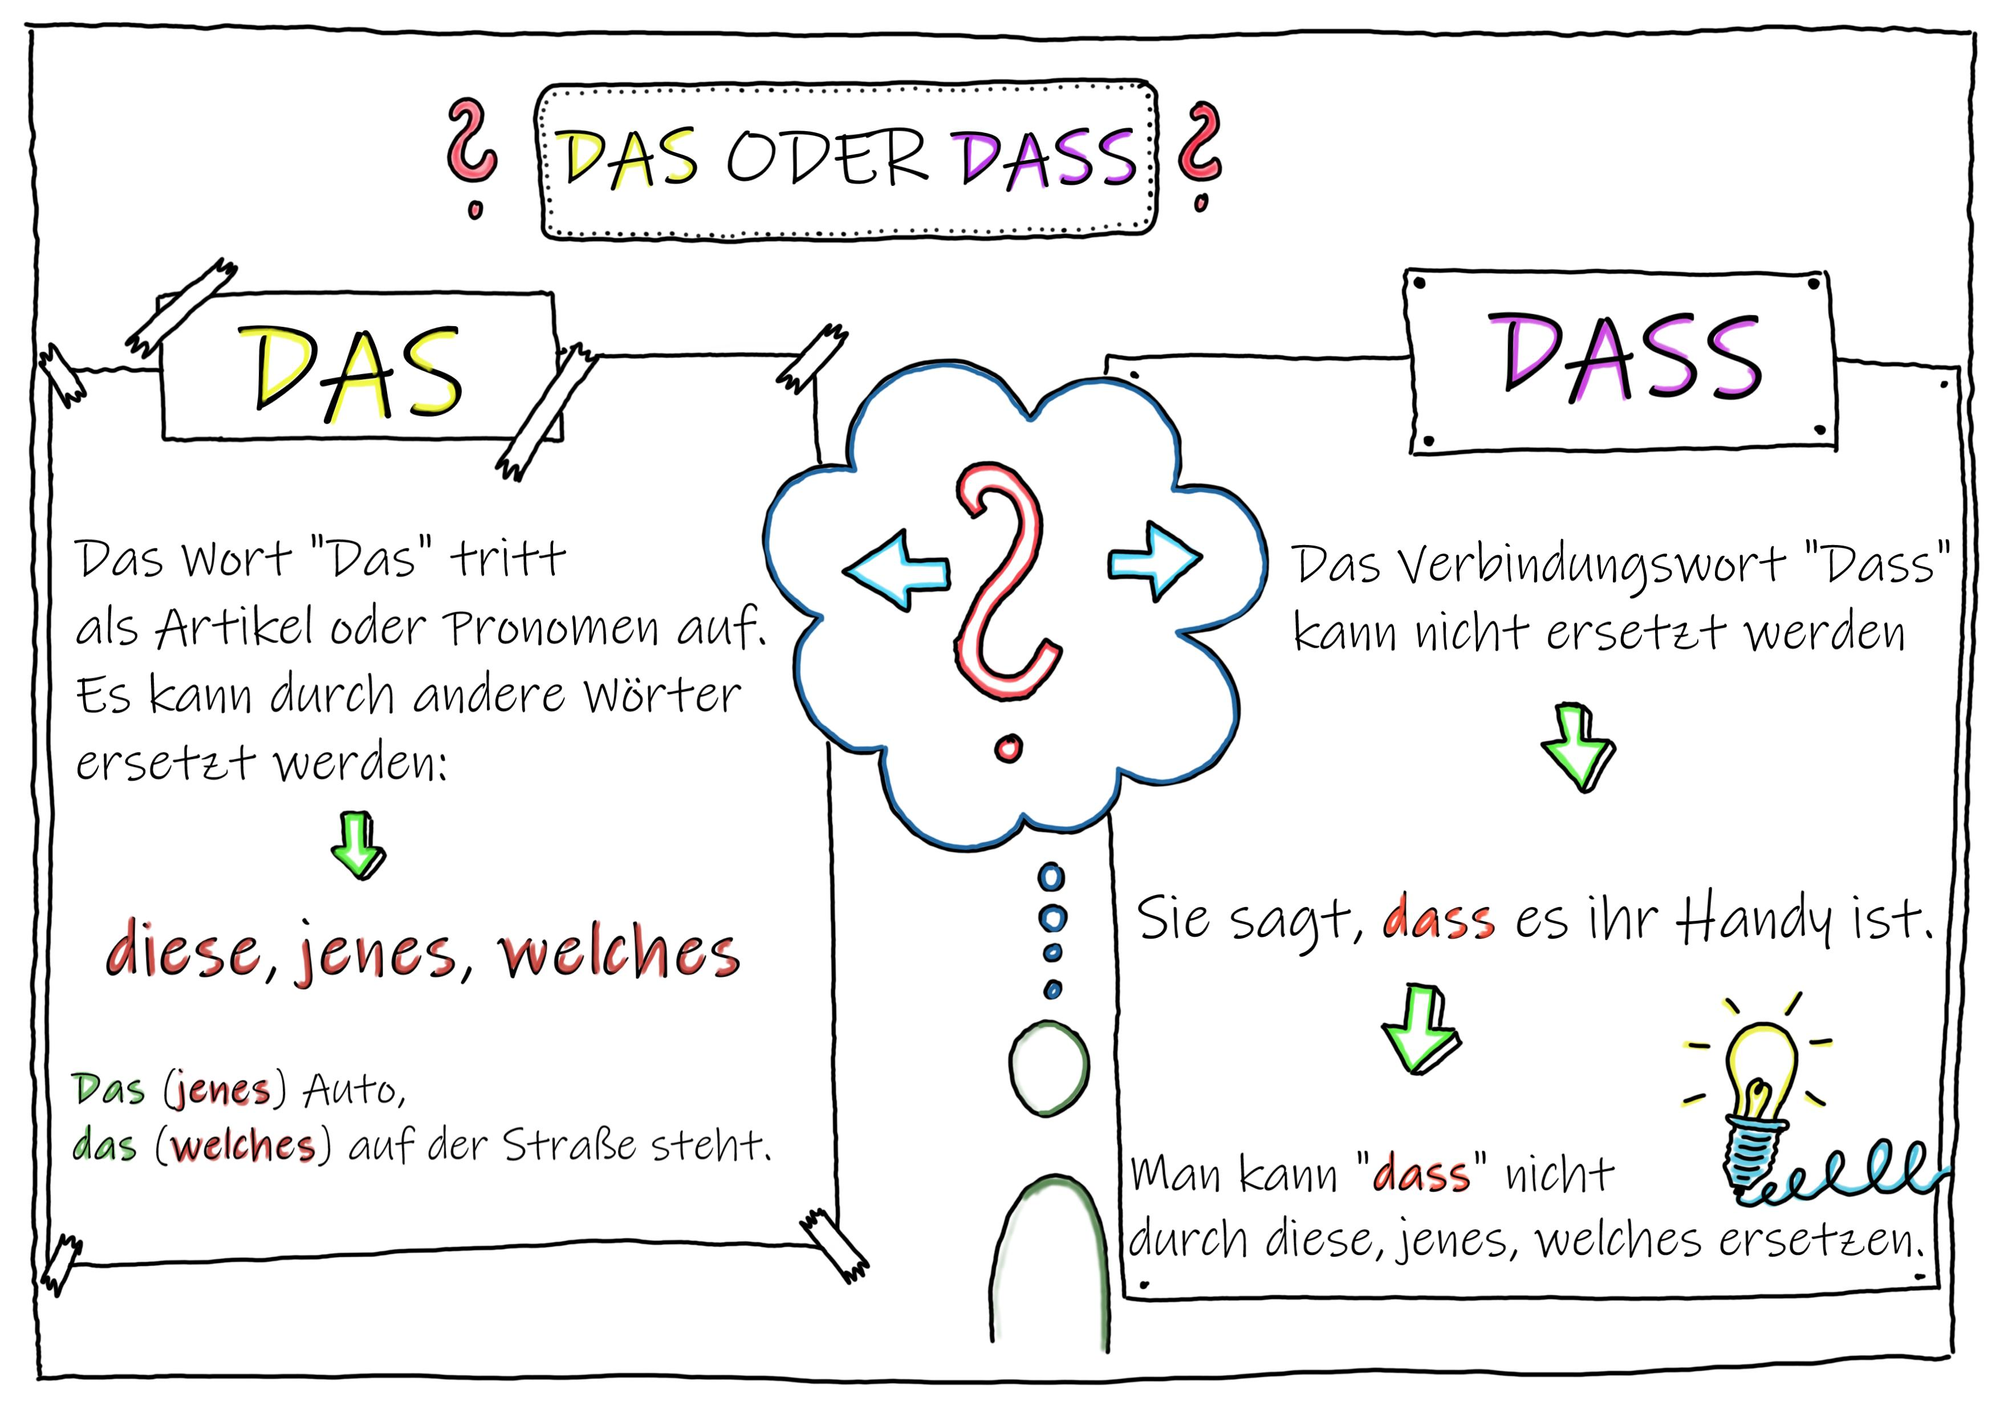 DAS ODER DASS
DAS
Das Wort "Das" tritt
als Artikel oder Pronomen auf.
Es kann durch andere Wörter
ersetzt werden:
diese, jenes, welches
Das (jenes) Auto,
das (welches) auf der Straße steht.
?
DASS
Das Verbindungswort "Dass"
kann nicht ersetzt werden
Sie sagt, dass es ihr Handy ist.
Man kann "dass" nicht
durch diese, jenes, welches ersetzen.